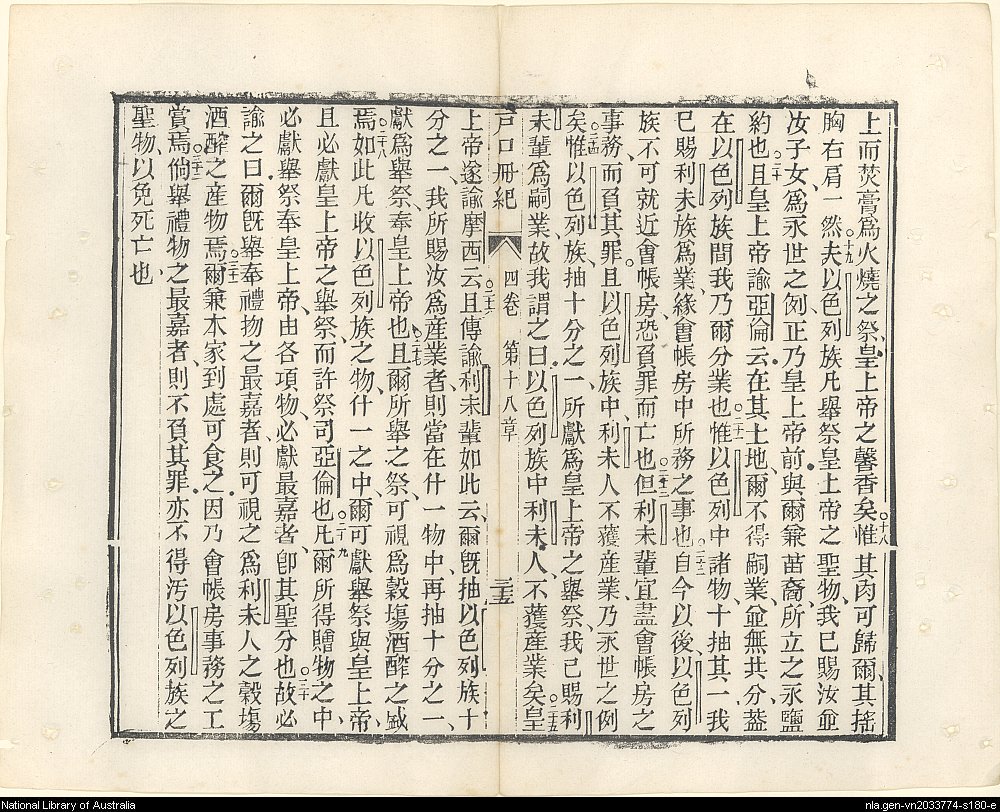 上而焚膏爲火燒之祭、皇上帝之馨香矣、○十八惟其肉可歸爾、其搖
胸右肩一然○十九夫以色列族凡舉祭皇上帝之聖物、我已賜汝並
汝子女、爲永世之例、正乃皇上帝前、與爾兼苗裔所立之永鹽
約也、○二十且皇上帝諭亞倫云、在其土地、爾不得嗣業、並無共分、蓋
在以色列族間、我乃爾分業也、○二十一惟以色列中諸物、十抽其一、我
已賜利未族爲業、緣會帳房中所務之事也、○二十二自今以後、以色列
族不可就近會帳房、恐負罪而亡也、○二十三但利未輩宜盡會帳房之
事務、而負其罪。且以色列族中、利未人不獲產業、乃永世之例
矣、○二十四惟以色列族、抽十分之一、所獻爲皇上帝之舉祭、我已賜利
未輩爲嗣業、故我謂之曰、以色列族中、利未人、不獲產業矣、○二十五皇
戶口冊紀 四卷 第十八章 三十五
上帝遂諭摩西云、○二十六且傳諭利未輩如此云、爾旣抽以色列族十
分之一、我所賜汝爲產業者、則當在什一物中、再抽十分之一、
獻爲舉祭、奉皇上帝也、○二十七且爾所舉之祭、可視爲穀塲酒醡之盛
焉、○二十八如此凡收以色列族之物、什一之中、爾可獻舉祭與皇上帝、
且必獻皇上帝之舉祭、而許祭司亞倫也、○二十九凡爾所得贈物之中、
必獻舉祭奉皇上帝、由各項物、必獻最嘉者、卽其聖分也、○三十故必
諭之曰、爾旣舉奉禮物之最嘉者、則可視之爲利未人之穀塲
酒醡之產物焉、○三十一爾兼本家到處可食之、因乃會帳房事務之工
賞焉、○三十二倘舉禮物之最嘉者、則不負其罪、亦不得汚以色列族之
聖物、以免死亡也、
National Library of Australia
nla.gen-vn2033774-s180-e